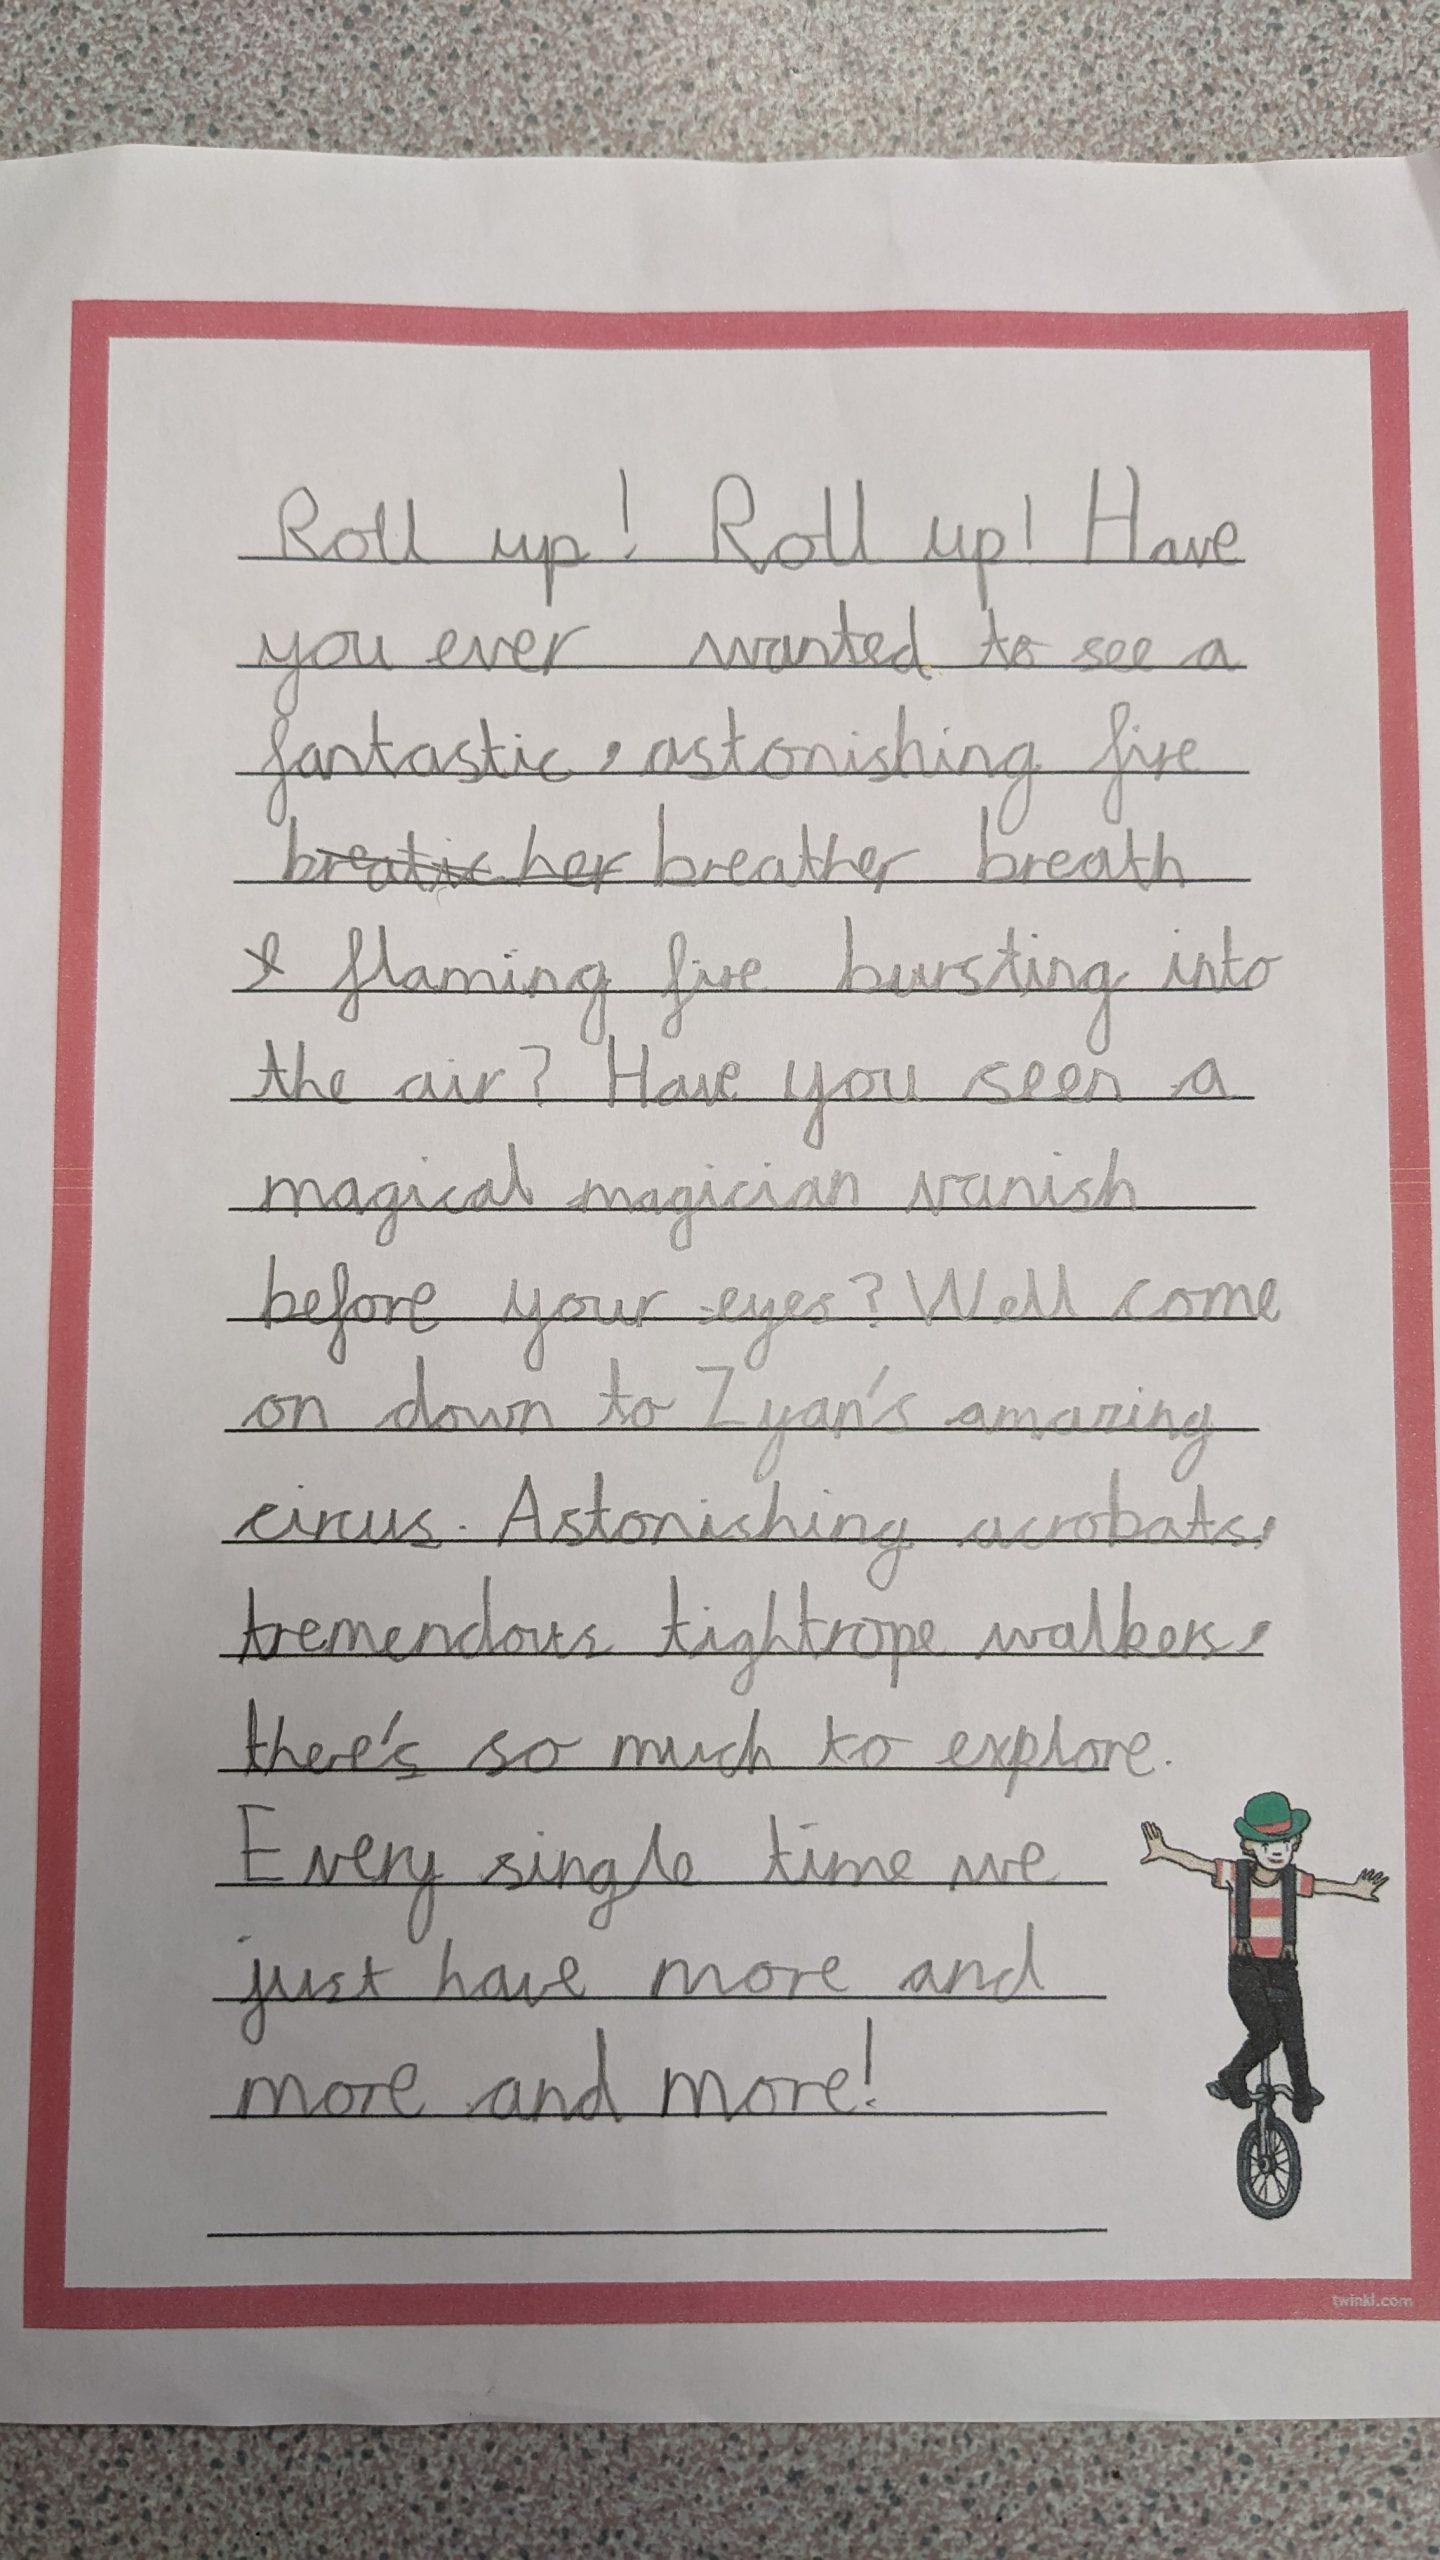 Roll up! Roll up! Have
you ever wanted to see a
fantastic, astonishing fire
breather breath
flaming fire bursting into
the air? Have you seen a
magical magician vanish
before your eyes? Well come
on down to Zyan's amazing
circus. Astonishing acrobats,
tremendous tightrope walkers,
there's so much to explore.
Every single time we
just have more and
more and more!
twinkl.com